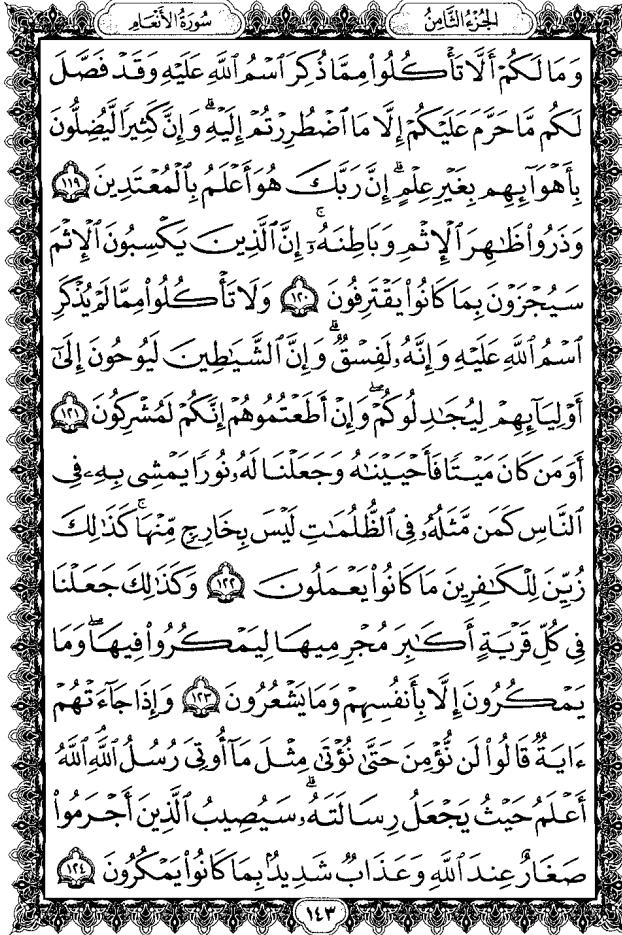 الجُزْءُ الثَّامِنُ
سُورَةُ الأَنْعَامِ
وَمَا لَكُمْ أَلَّا تَأْكُلُوا۟ مِمَّا ذُكِرَ ٱسْمُ ٱللَّهِ عَلَيْهِ وَقَدْ فَصَّلَ
لَكُم مَّا حَرَّمَ عَلَيْكُمْ إِلَّا مَا ٱضْطُرِرْتُمْ إِلَيْهِ ۗ وَإِنَّ كَثِيرًا لَّيُضِلُّونَ
بِأَهْوَآئِهِم بِغَيْرِ عِلْمٍ ۗ إِنَّ رَبَّكَ هُوَ أَعْلَمُ بِٱلْمُعْتَدِينَ ١١٩
وَذَرُوا۟ ظَٰهِرَ ٱلْإِثْمِ وَبَاطِنَهُۥٓ ۚ إِنَّ ٱلَّذِينَ يَكْسِبُونَ ٱلْإِثْمَ
سَيُجْزَوْنَ بِمَا كَانُوا۟ يَقْتَرِفُونَ ١٢٠ وَلَا تَأْكُلُوا۟ مِمَّا لَمْ يُذْكَرِ
ٱسْمُ ٱللَّهِ عَلَيْهِ وَإِنَّهُۥ لَفِسْقٌ ۗ وَإِنَّ ٱلشَّيَٰطِينَ لَيُوحُونَ إِلَىٰٓ
أَوْلِيَآئِهِمْ لِيُجَٰدِلُوكُمْ ۖ وَإِنْ أَطَعْتُمُوهُمْ إِنَّكُمْ لَمُشْرِكُونَ ١٢١
أَوَمَن كَانَ مَيْتًا فَأَحْيَيْنَٰهُ وَجَعَلْنَا لَهُۥ نُورًا يَمْشِى بِهِۦ فِى
ٱلنَّاسِ كَمَن مَّثَلُهُۥ فِى ٱلظُّلُمَٰتِ لَيْسَ بِخَارِجٍ مِّنْهَا ۚ كَذَٰلِكَ
زُيِّنَ لِلْكَٰفِرِينَ مَا كَانُوا۟ يَعْمَلُونَ ١٢٢ وَكَذَٰلِكَ جَعَلْنَا
فِى كُلِّ قَرْيَةٍ أَكَٰبِرَ مُجْرِمِيهَا لِيَمْكُرُوا۟ فِيهَا ۖ وَمَا
يَمْكُرُونَ إِلَّا بِأَنفُسِهِمْ وَمَا يَشْعُرُونَ ١٢٣ وَإِذَا جَآءَتْهُمْ
ءَايَةٌ قَالُوا۟ لَن نُّؤْمِنَ حَتَّىٰ نُؤْتَىٰ مِثْلَ مَآ أُوتِىَ رُسُلُ ٱللَّهِ ٱللَّهُ
أَعْلَمُ حَيْثُ يَجْعَلُ رِسَالَتَهُۥ ۗ سَيُصِيبُ ٱلَّذِينَ أَجْرَمُوا۟
صَغَارٌ عِندَ ٱللَّهِ وَعَذَابٌ شَدِيدٌۢ بِمَا كَانُوا۟ يَمْكُرُونَ ١٢٤
١٤٣